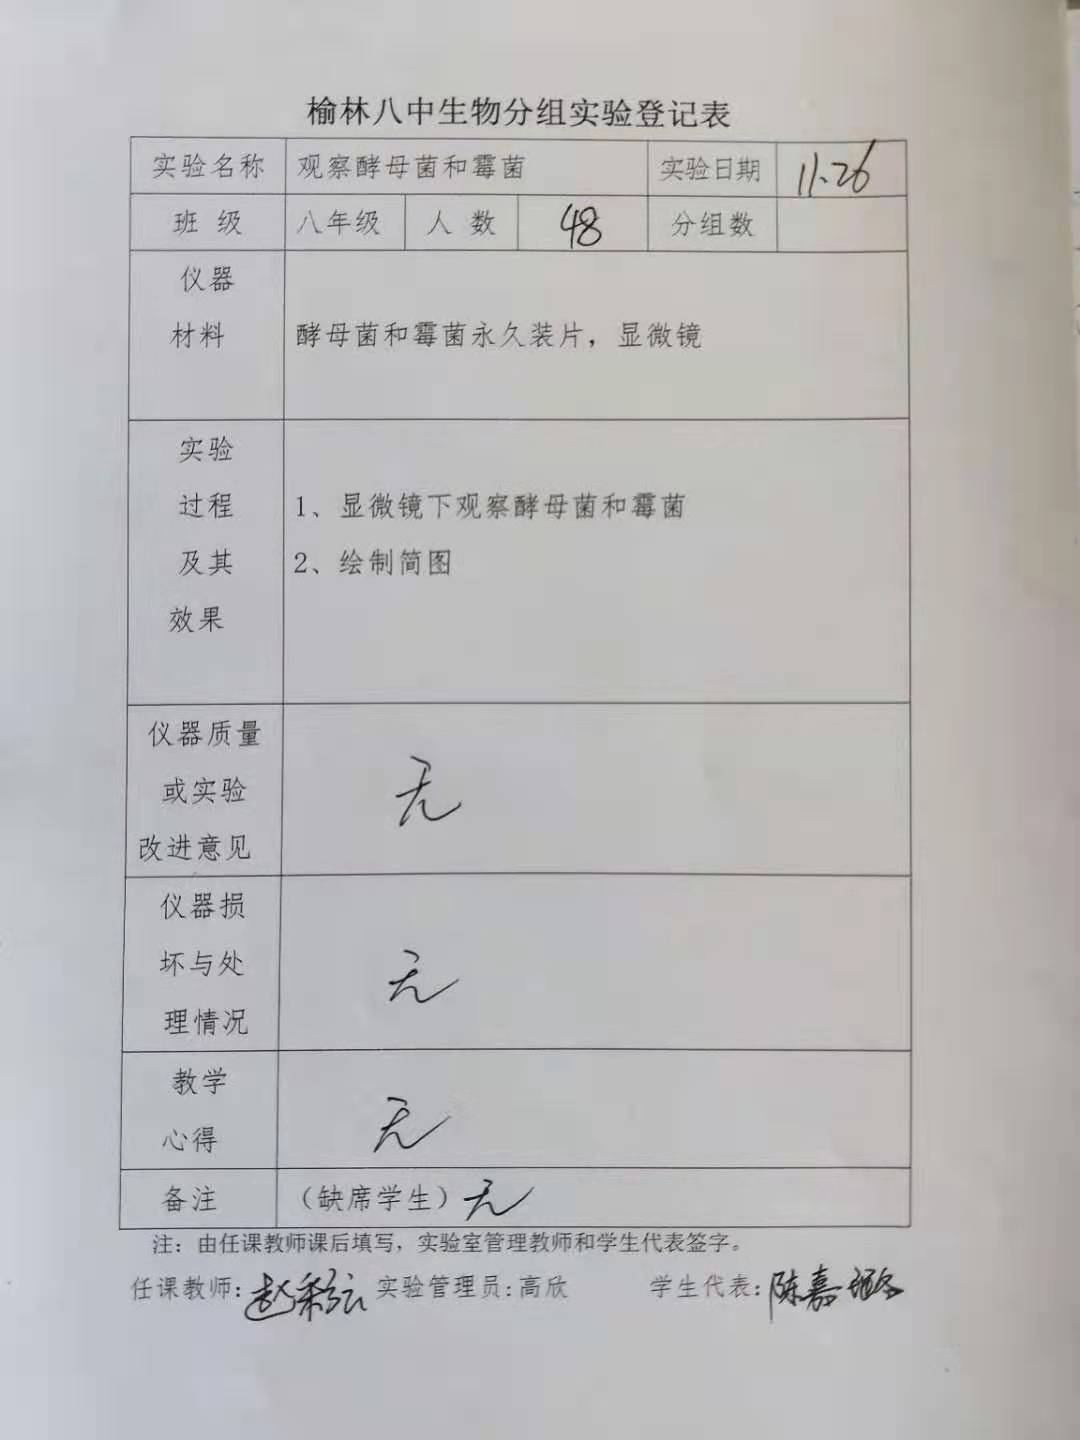 榆林八中生物分组实验登记表
实验名称 观察酵母菌和霉菌 实验日期 11.26
班 级 八年级 人 数 48 分组数
仪器
材料 酵母菌和霉菌永久装片，显微镜
实验
过程 1、显微镜下观察酵母菌和霉菌
及其 2、绘制简图
效果
仪器质量
或实验 无
改进意见
仪器损
坏与处 无
理情况
教学
心得 无
备注 （缺席学生）无
注：由任课教师课后填写，实验室管理教师和学生代表签字。
任课教师: 赵 实验管理员:高欣 学生代表:陈嘉